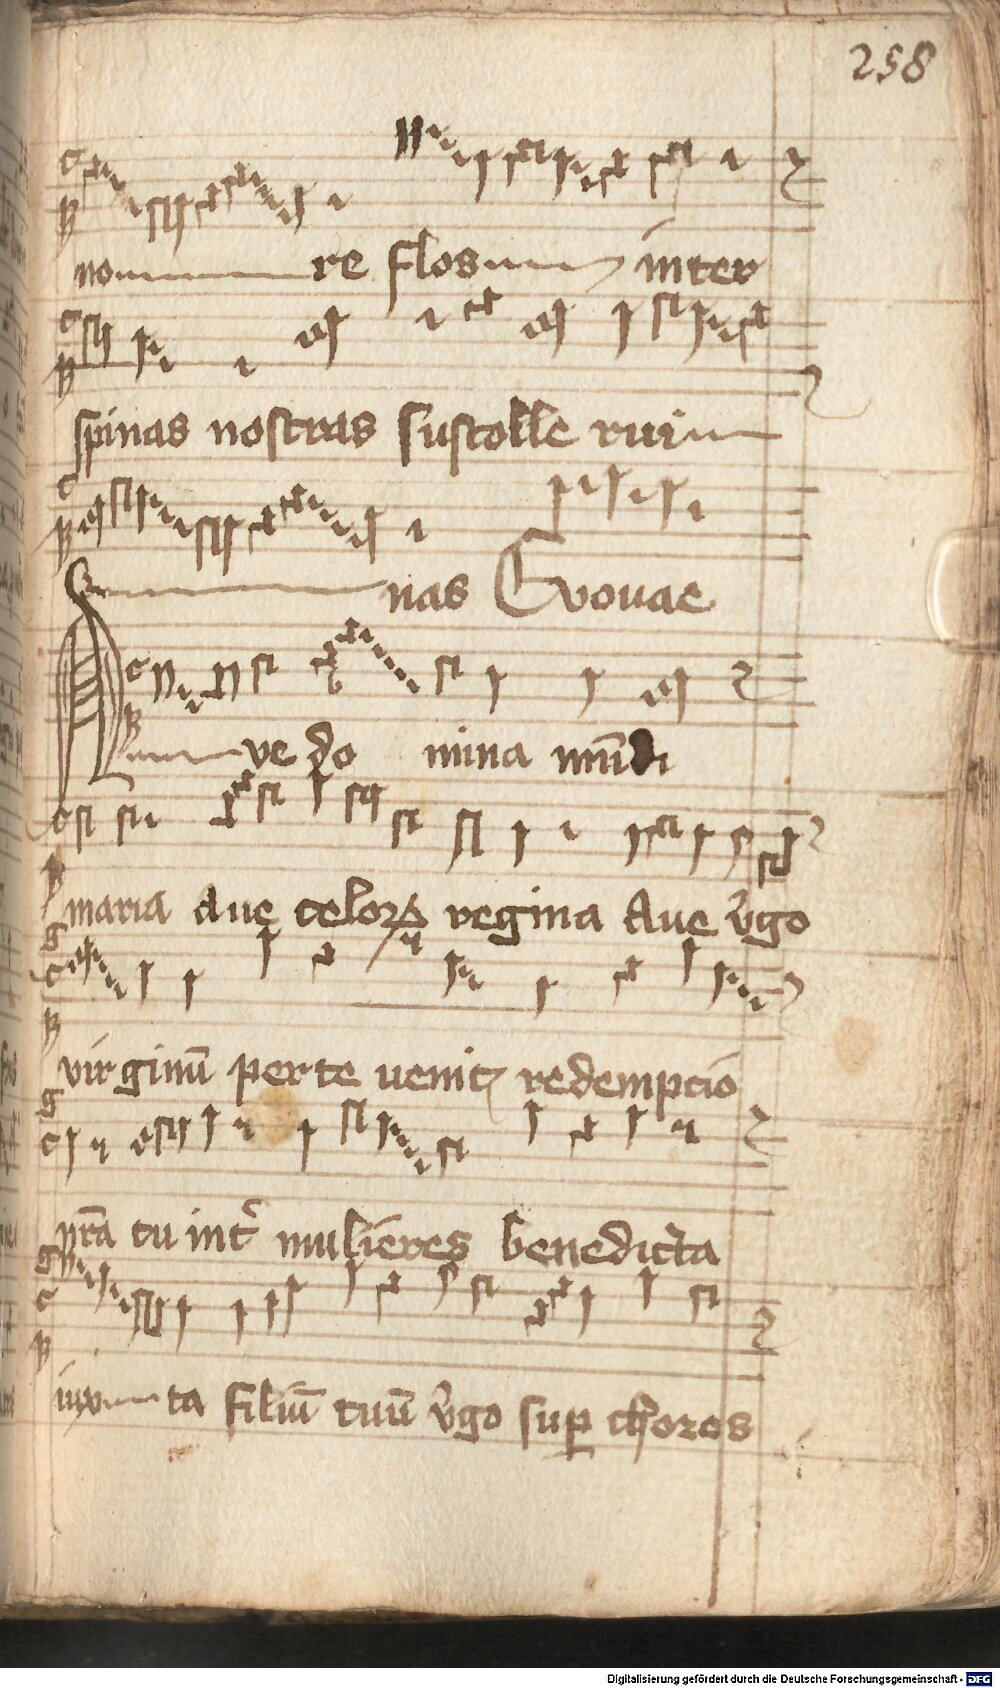 258
no re flos inter
spinas nostras sustolle rui
nas Evovae
Ave do mina mūdi
maria aue celorꝝ regina Aue v̄go
virginū per te uenit redemptio
nr̄a tu int̉ mulieres benedicta
iuxta filiū tuū v̄go suꝑ choros
Digitalisierung gefördert durch die Deutsche Forschungsgemeinschaft - DFG